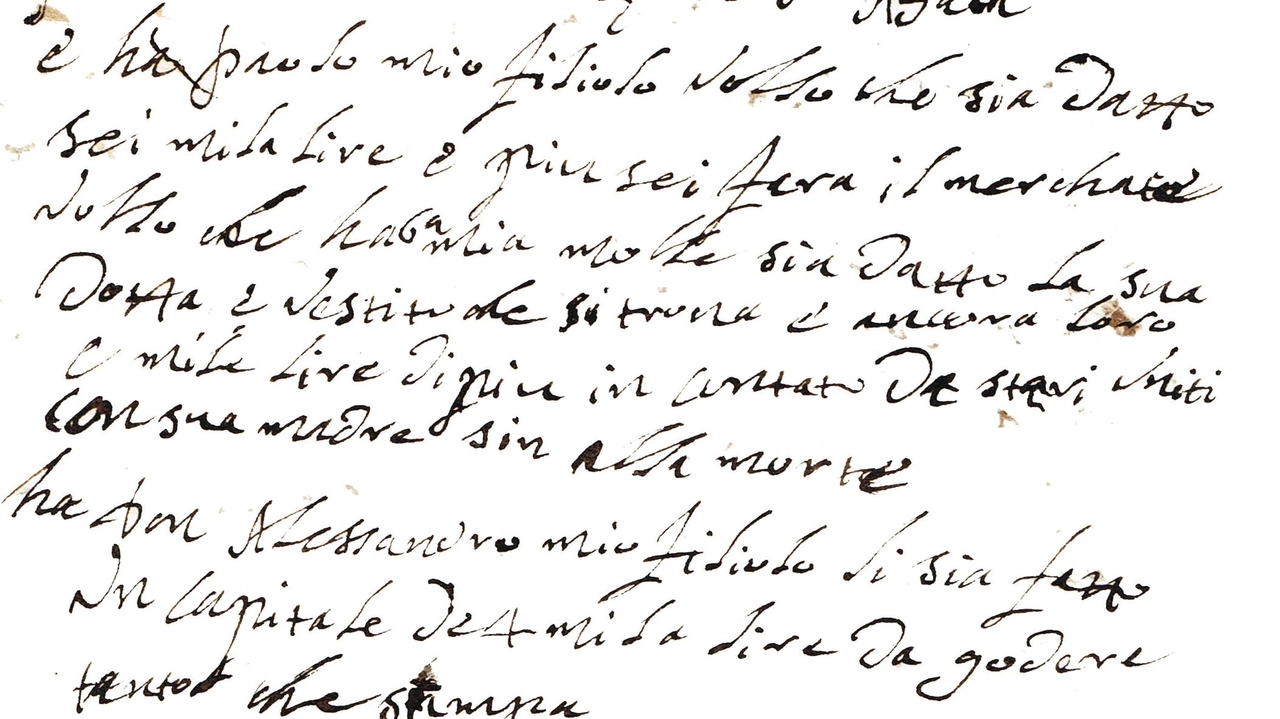 e ha paolo mio filiolo vollio che sia datto
sei mila lire e piu sei fara il merchate
vollio che ha mia molie sia datto la sua
dotta e vestituche si trova e ancora loro
e mile lire di piu in contato de stari Vniti
con sua madre sin alla morte
ha don Alessandro mio filiolo li sia fatto
Vn capitale de 4 mila lire da godere
tanto che